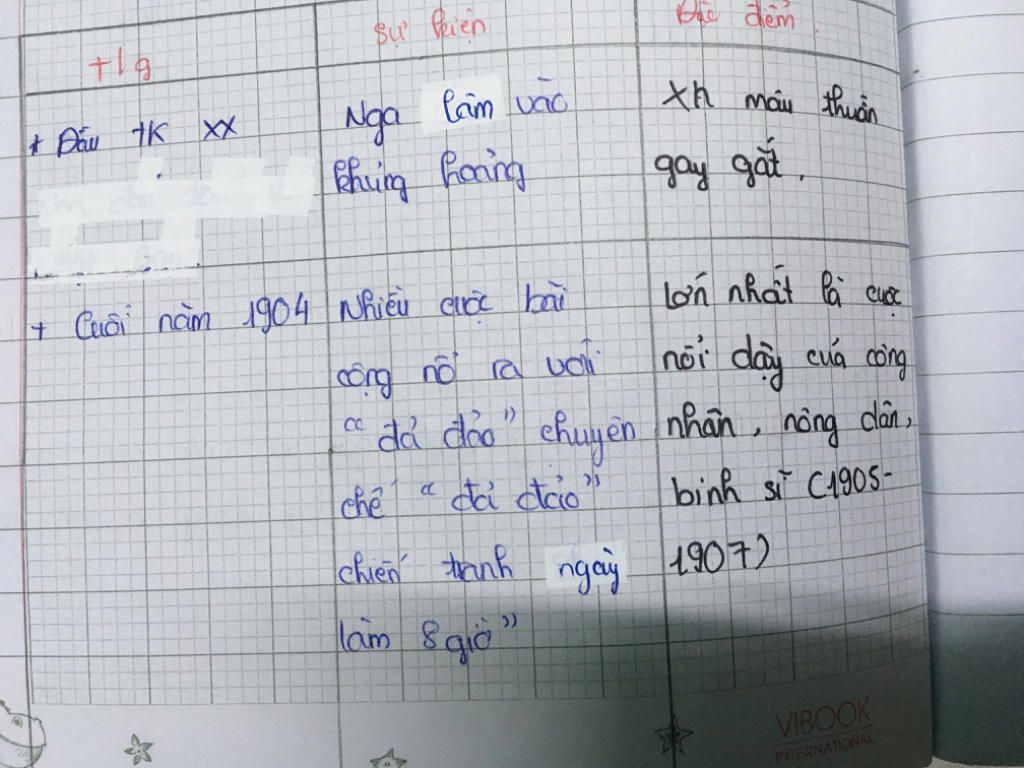 t/g
sự kiện
Đặc điểm.
+ Đầu tk XX
Nga lâm vào
khủng hoảng
Xh mâu thuẫn
gay gắt.
+ Cuối năm 1904
Nhiều cuộc bãi
công nổ ra với
"đả đảo" chuyên
chế "đả đảo"
chiến tranh ngày
làm 8 giờ"
lớn nhất là cuộc
nổi dậy của công
nhân, nông dân,
binh sĩ (1905-
1907)
VIBOOK
INTERNATIONAL